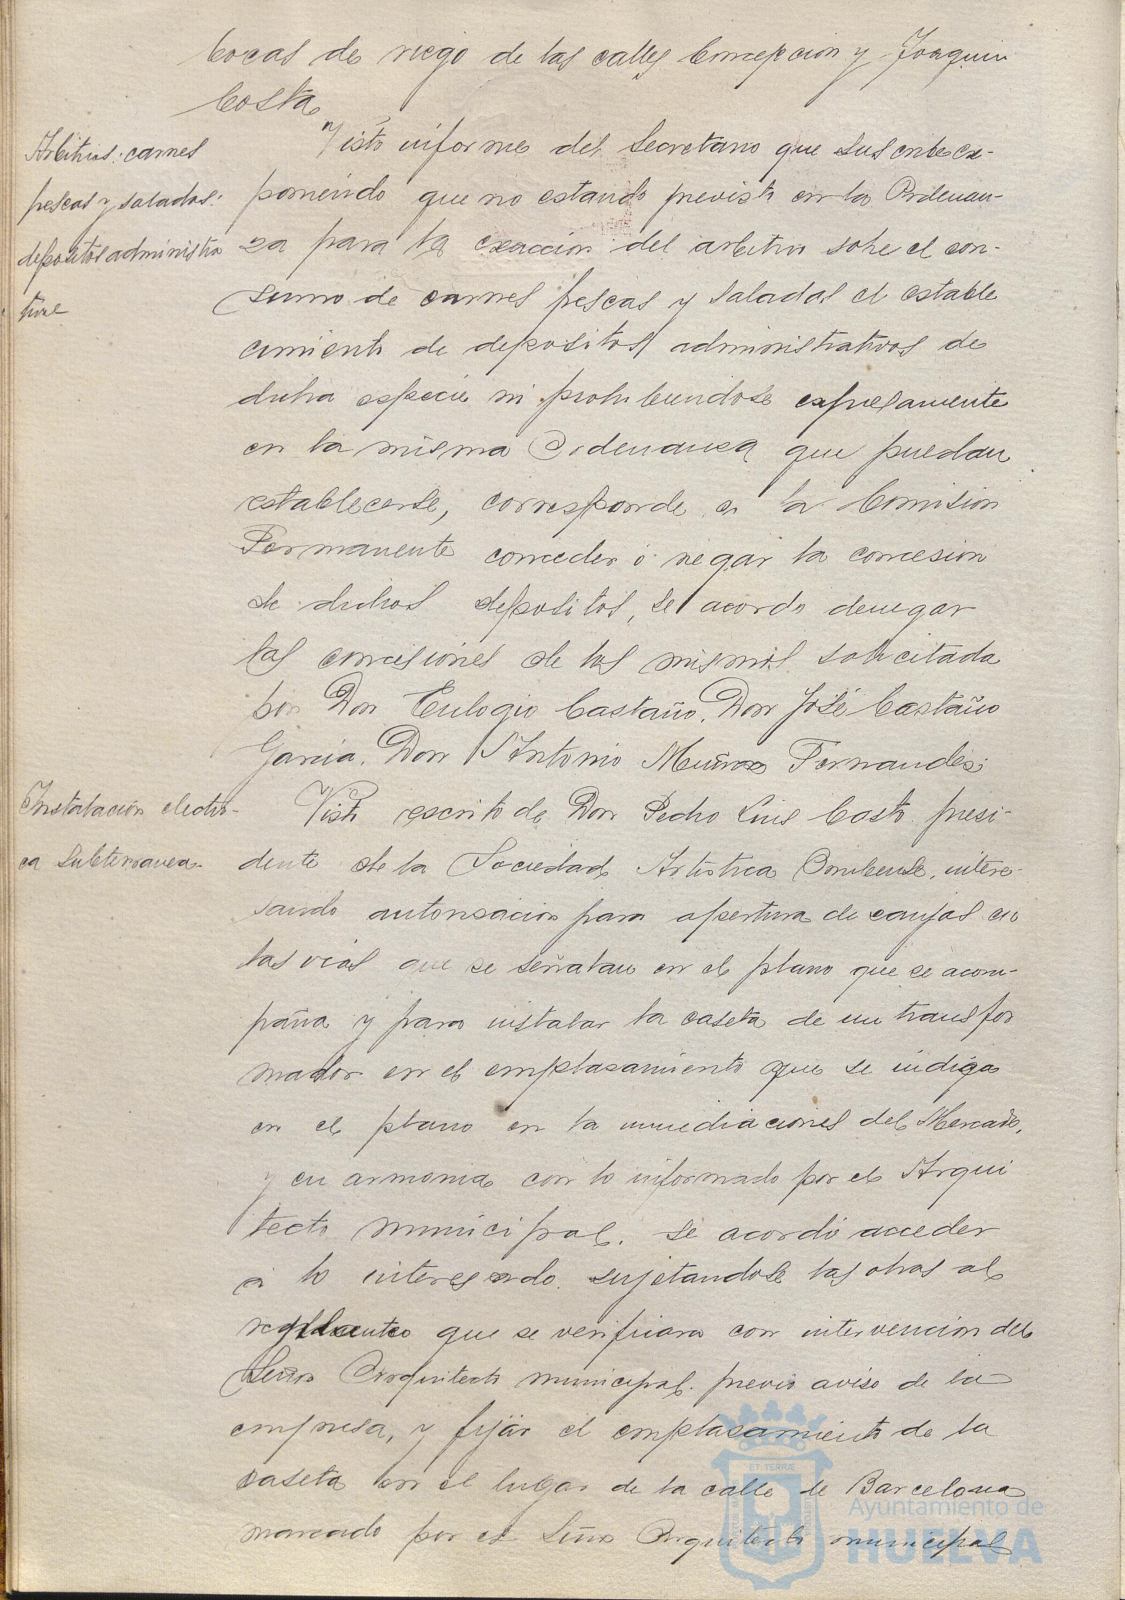 bocas de riego de las calles Concepcion y Joaquin
Costa
Arbitrios: carnes
frescas y saladas:
depositos administra
tivos
Visto informe del Secretario que suscribe ex-
poniendo que no estando previsto en la Ordenan-
za para la exaccion del arbitrio sobre el con-
sumo de carnes frescas y saladas el estable
cimiento de depositos administrativos de
dicha especie ni prohibiendose expresamente
en la misma Ordenanza que puedan
establecerse, corresponde a la Comision
Permanente conceder o negar la concesion
de dichos depositos, se acordo denegar
las concesiones de los mismos solicitada
por Don Eulogio Castaño, Don José Castaño
Garcia, Don Antonio Muñoz Fernandez;
Instalación electri-
ca subterranea.
Visto escrito de Don Pedro Luis Casto presi-
dente de la Sociedad Artistica Onubense, intere-
sando autorizacion para apertura de zanjas en
las vias que se señalan en el plano que se acom-
paña y para instalar la caseta de un transfor
mador en el emplazamiento que se indica
en el plano en la inmediaciones del Mercado,
y en armonia con lo informado por el Arqui
tecto municipal. se acordó acceder
a lo interesado. sujetandose las obras al
que se verificara con intervencion del
Señor Arquitecto municipal. previo aviso de la
empresa, y fijar el emplazamiento de la
caseta en el lugar de la calle de Barcelona
marcado por el Señor Arquitecto municipal
Ayuntamiento de
HUELVA